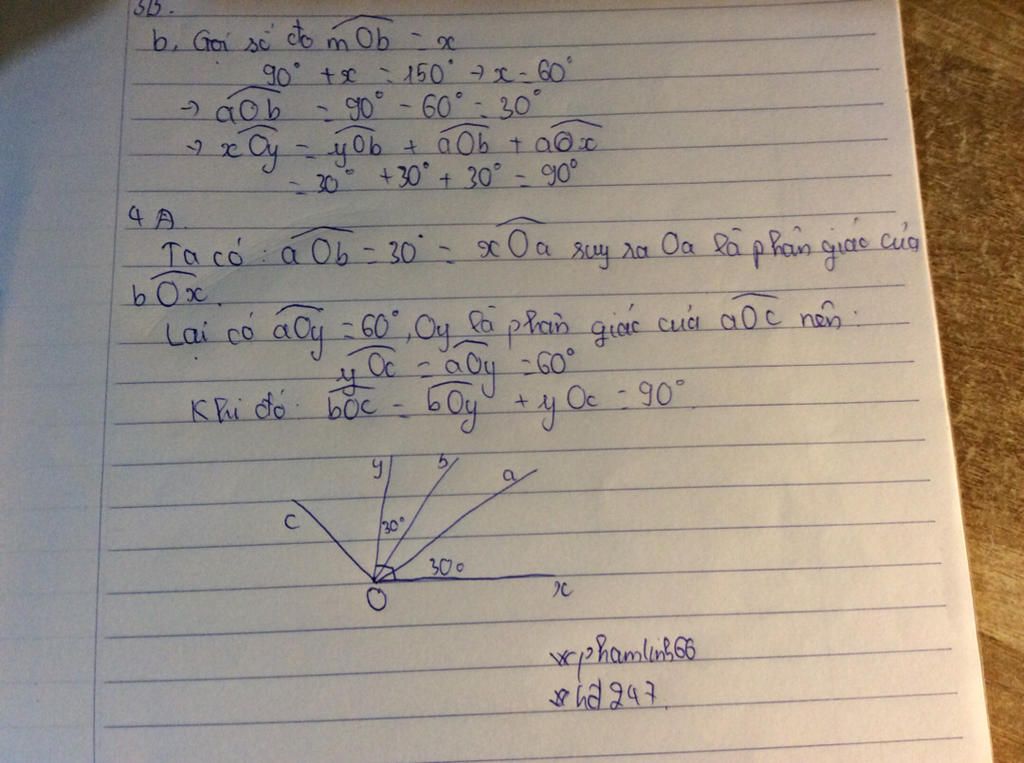 3B.
b, Gọi số đo mOb = x
90° + x = 150° → x = 60°
→ aOb = 90° - 60° = 30°
→ xOy = yOb + aOb + aOx
= 30° + 30° + 30° = 90°
4A.
Ta có: aOb = 30° = xOa suy ra Oa là phân giác của
bOx.
Lại có aOy = 60°, Oy là phân giác của aOc nên:
yOc = aOy = 60°
Khi đó: bOc = bOy + yOc = 90°
y b a
c
30°
30°
O x
phamlinh66
hd247